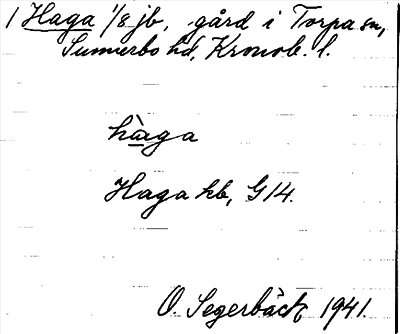 1 Haga 1/8 jb, gård i Torpa sn,
Sunnerbo hd, Kronob. l.
hàga
Haga kb, G 14.
O. Segerbäck, 1941.